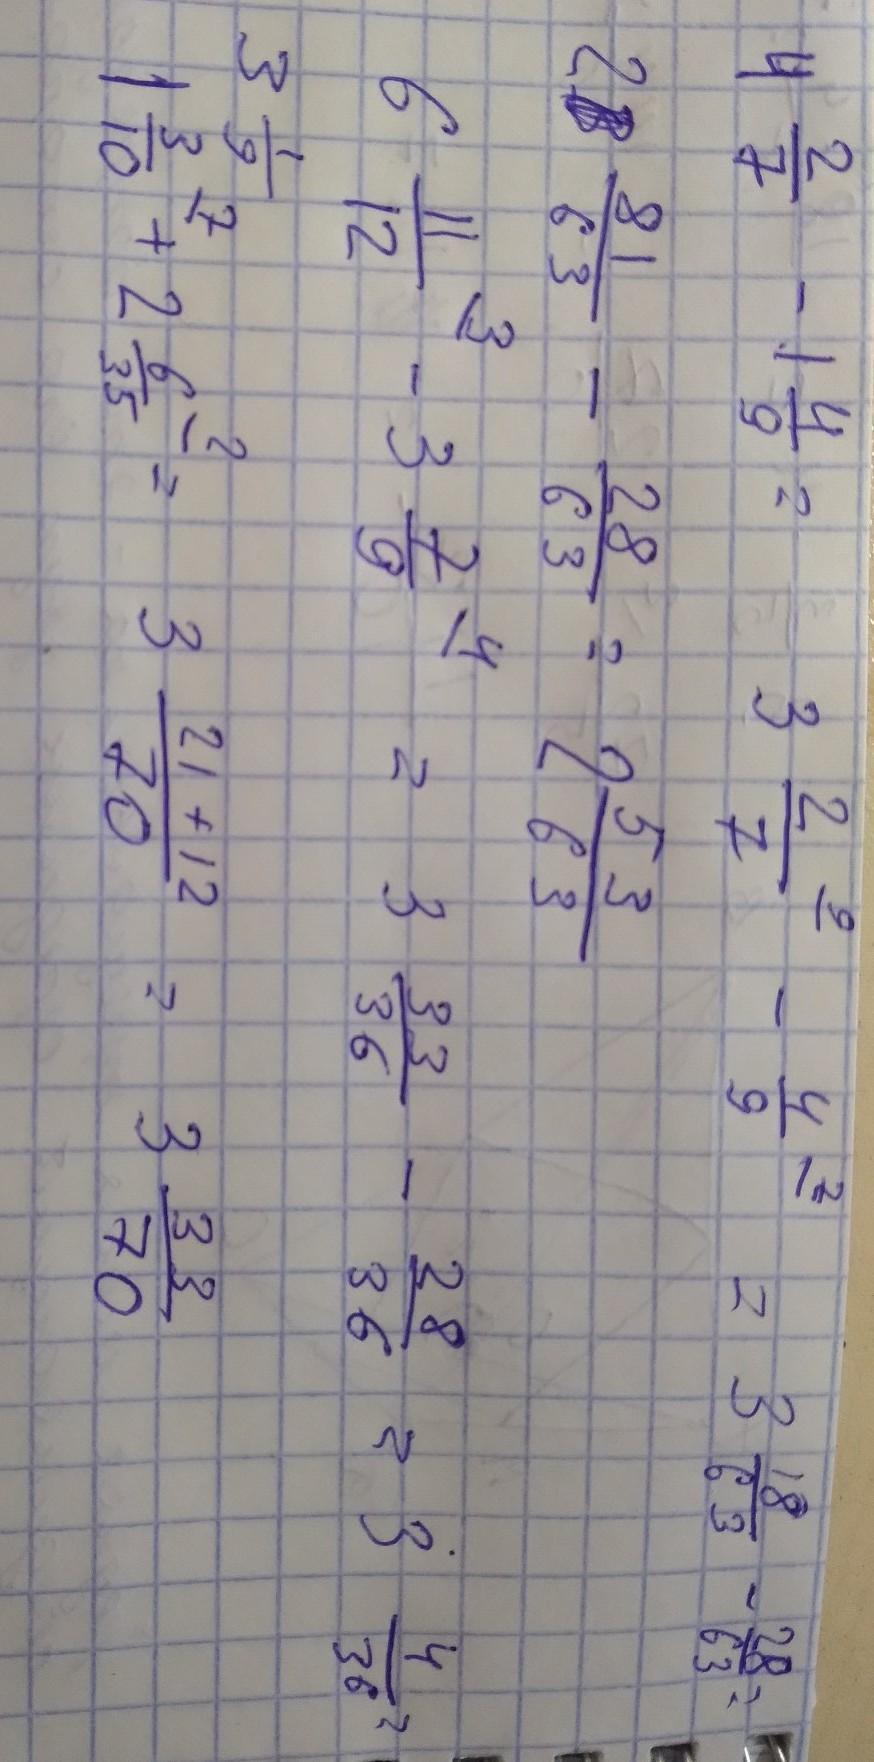 4 2/7 - 1 4/9 = 3 2/7 \9 - 4/9 \7 = 3 18/63 - 28/63 =
2 81/63 - 28/63 = 2 53/63
6 11/12 \3 - 3 7/9 \4 = 3 33/36 - 28/36 = 3 4/36 =
3 1/9
1 3/10 \7 + 2 6/35 \2 = 3 21+12/70 = 3 33/70